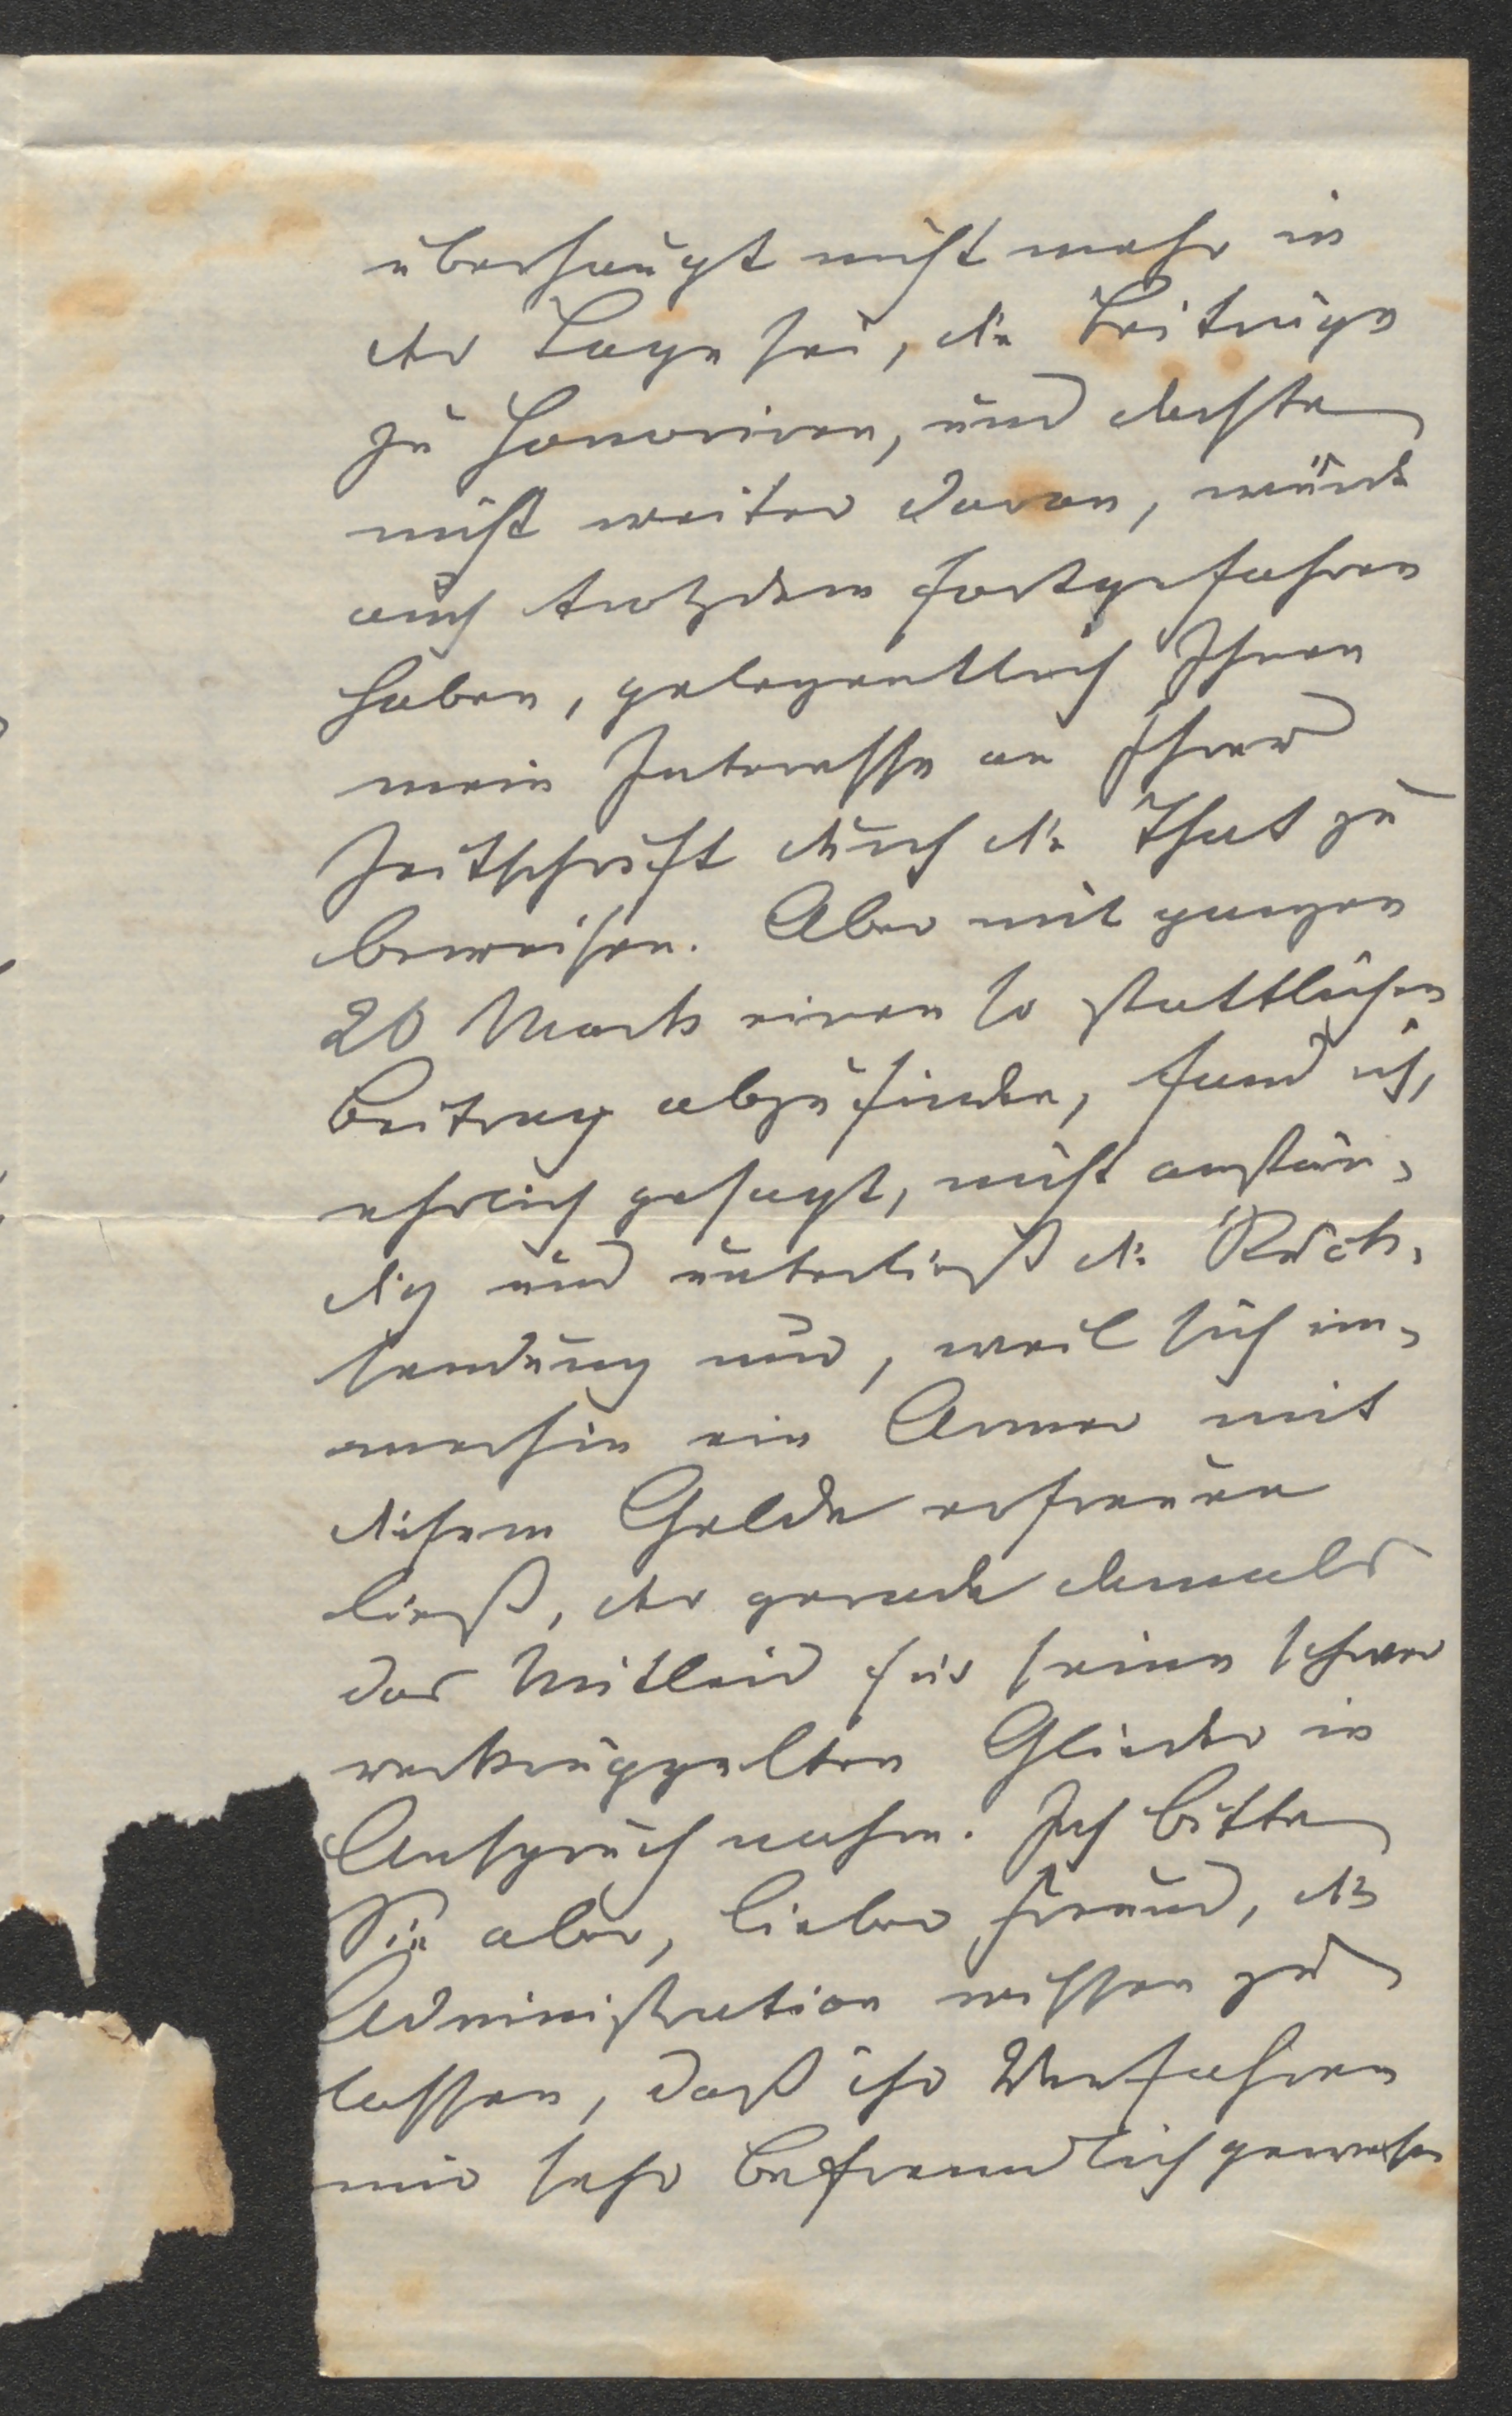 überhaupt nicht mehr in
der Lage sei, die Beiträge
zu honoriren, und dachte
nicht weiter daran, würde
auch trotzdem fortgefahren
haben, gelegentlich Ihnen
mein Interesse an Ihrer
Zeitschrift durch die That zu
beweisen. Aber mit ganzen
20 Mark einen so stattlichen
Beitrag abzufinden, fand ich,
ehrlich gesagt, nicht anstän-
dig und unterließ die Rück-
sendung nur, weil sich im-
merhin ein Armer mit
diesem Gelde erfreuen
ließ, der gerade damals
das Mitleid für seine schwer
verkrüppelten Glieder in
Anspruch nahm. Ich bitte
Sie aber, lieber Freund, die
Administration wissen zu
lassen, daß ihr Verfahren
mir sehr befremdlich gewesen